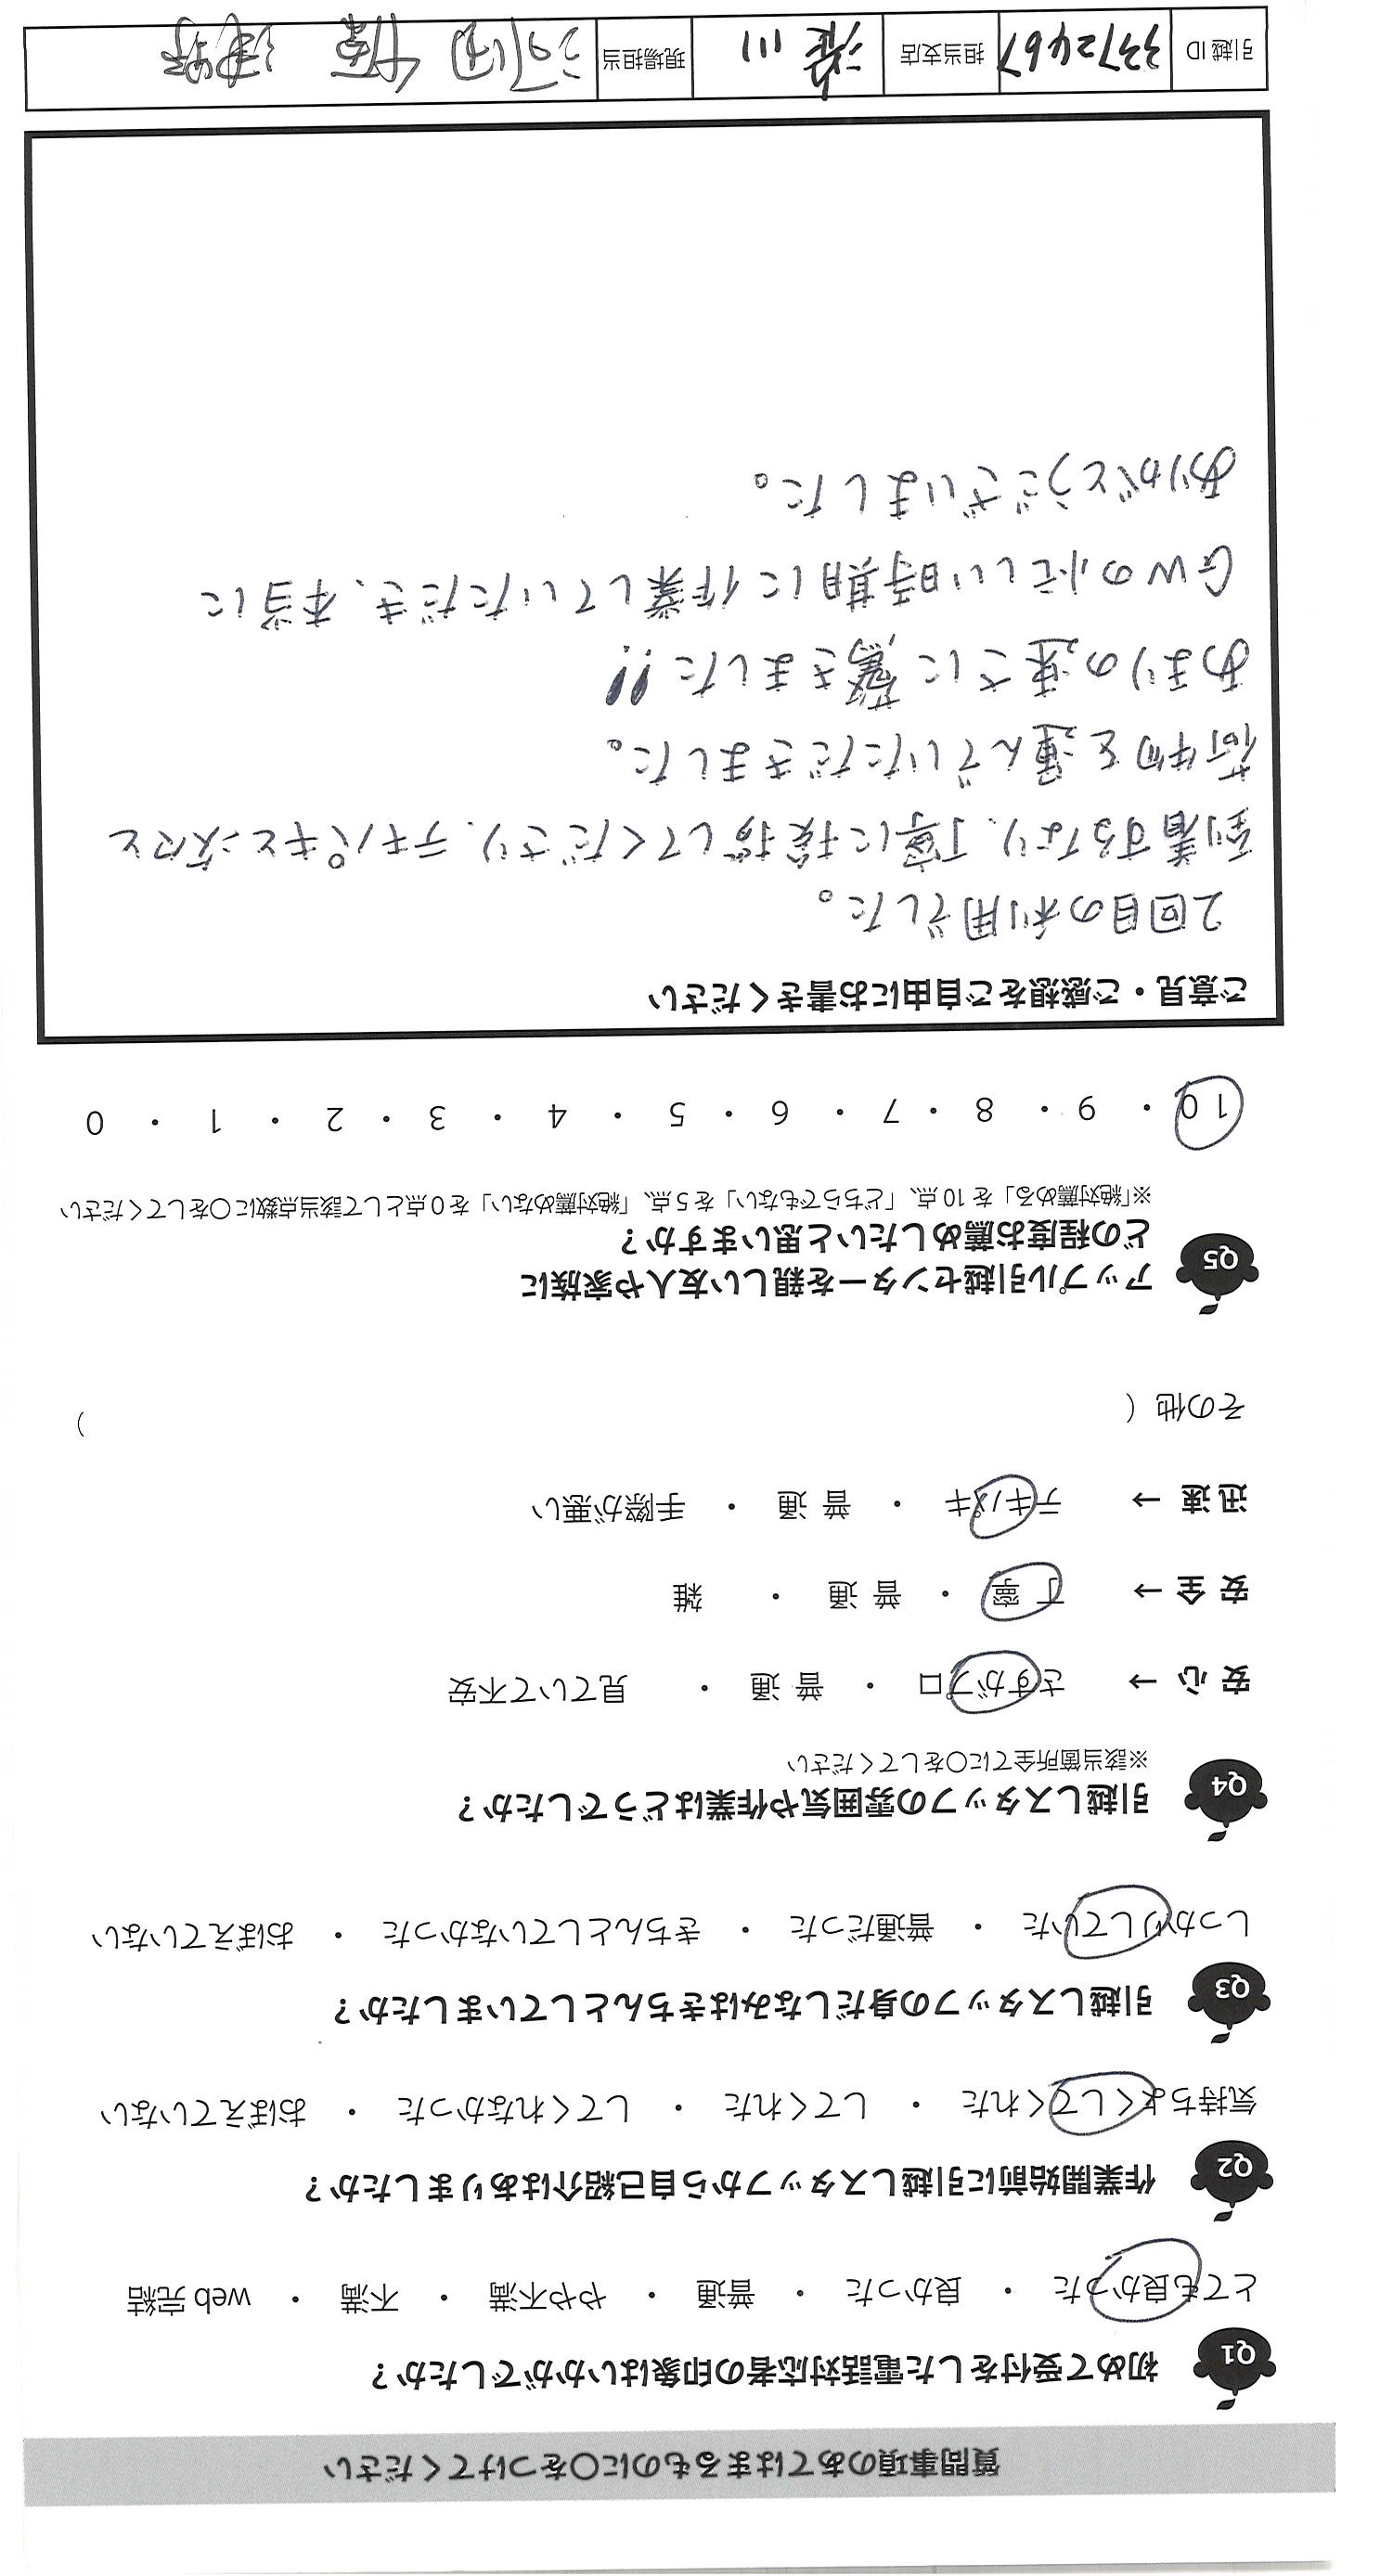 質問事項のあてはまるものに○をつけてください
Q1 初めて受付をした電話対応者の印象はいかがでしたか？
とても良かった ・ 良かった ・ 普通 ・ やや不満 ・ 不満 ・ web完結
Q2 作業開始前に引越しスタッフから自己紹介はありましたか？
気持ちよくしてくれた ・ してくれた ・ してくれなかった ・ おぼえていない
Q3 引越しスタッフの身だしなみはきちんとしていましたか？
しっかりしていた ・ 普通だった ・ きちんとしていなかった ・ おぼえていない
Q4 引越しスタッフの雰囲気や作業はどうでしたか？
※該当箇所全てに○をしてください
安心 → さすがプロ ・ 普通 ・ 見ていて不安
安全 → 丁寧 ・ 普通 ・ 雑
迅速 → テキパキ ・ 普通 ・ 手際が悪い
その他（ ）
Q5 アップル引越センターを親しい友人や家族に
どの程度お薦めしたいと思いますか？
※「絶対薦める」を10点、「どちらでもない」を5点、「絶対薦めない」を0点として該当点数に○をしてください
10 ・ 9 ・ 8 ・ 7 ・ 6 ・ 5 ・ 4 ・ 3 ・ 2 ・ 1 ・ 0
ご意見・ご感想をご自由にお書きください
2回目の利用でした。
到着するなり、丁寧に挨拶してくださり、テキパキと次々と
荷物を運んでいただきました。
あまりの速さに驚きました!!
GWの忙しい時期に作業していただき、本当に
ありがとうございました。
引越ID 3372467 担当支店 淀川 現場担当